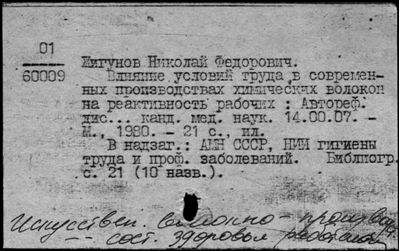 01
60009
Жигунов Николай Федорович.
Влияние условий труда в современ-
ных производствах химических волокон
на реактивность рабочих : Автореф.
дис... канд. мед. наук. 14.00.07. -
М., 1980. - 21 с., ил.
В надзаг.: АМН СССР, НИИ гигиены
труда и проф. заболеваний. Библиогр.
с. 21 (10 назв.).
Искусствен. волокно - производ
-- сост. здоровья работающ